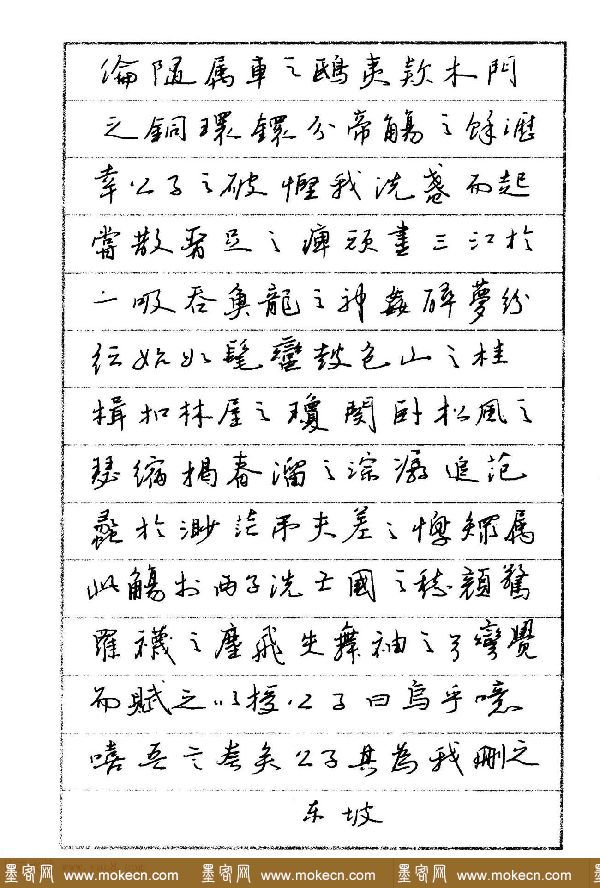 綸隨属車之鴟夷款木門
之銅環鐶分帝觴之餘瀝
幸公子之破慳我洗盞而起
嘗散足之痺頑盡三江於
一吸吞魚龍之神姦醉夢紛
紜始如髦蠻鼓包山之桂
楫扣林屋之瓊関卧松風之
瑟縮揭春溜之淙潺追范
蠡於渺茫吊夫差之惸鰥属
此觴於西子洗亡國之愁顏驚
羅襪之塵飛失舞袖之弓彎覺
而賦之以授公子曰烏乎噫
嘻吾言夸矣公子其為我刪之
东坡
墨客网 www.mokecn.com 墨客网 www.mokecn.com 墨客网 www.mokecn.com